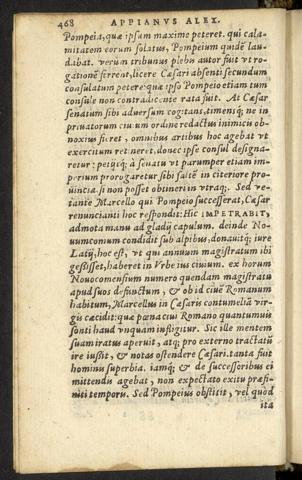 468 APPIANVS ALEX.
Pompeia, quæ ipsum maximo peteret. qui cala-
mitatem eorum solatus, Pompeium quidē lau-
dabat. verùm tribunus plebis autor fuit vt ro-
gationē ferrent, licere Cæsari absenti secundum
consulatum petere: quæ ipso Pompeio etiam tum
consule non contradicente rata fuit. At Cæsar
senatum sibi aduersum cogitans, timensq; ne in
priuatorum ciuium ordinē redactus inimicis ob-
noxius fieret, omnibus artibus hoc agebat vt
exercitum retineret, donec ipse consul designa-
retur: petijtq; à senatu vt parumper etiam im-
perium prorogaretur sibi saltē in citeriore pro-
uincia, si non posset obtineri in vtraq;. Sed ve-
tante Marcello qui Pompeio successerat, Cæsar
renuncianti hoc respondit: Hic IMPETRABIT,
admota manu ad gladij capulum. deinde No-
uumcomum condidit sub alpibus, donauitq; iure
Latij, hoc est, vt qui annuum magistratum ibi
gessisset, haberet in Vrbe ius ciuium. ex horum
Nouocomensium numero quendam magistratu
apud suos defunctum, & ob id ciuē Romanum
habitum, Marcellus in Cæsaris contumeliā vir-
gis cæcidit: quæ pœna ciui Romano quantumuis
sonti haud vnquam infligitur. Sic ille mentem
suam iratus aperuit, atq; pro externo tractatū
ire iussit, & notas ostendere Cæsari. tanta fuit
hominis superbia. iamq; & de successoribus ei
mittendis agebat, non expectato exitu præfi-
niti temporis. Sed Pompeius obstitit, vel quod
ita